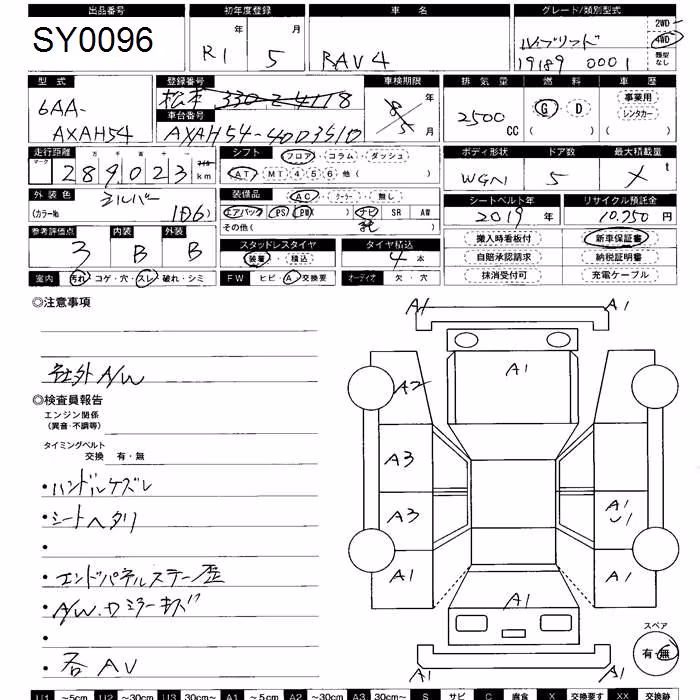 出品番号 初年度登録 車 名 グレード/類別型式
SY0096 R1 年 5 月 RAV4 ハイブリッド 2WD 4WD
19189 0001 類型なし
型 式 登録番号 車検期限 排 気 量 燃 料 車 歴
6AA-AXAH54 松本 330 8 年 5 月 2500 CC G D ( ) 事業用 レンタカー ( )
車台番号
AXAH54-4003510
走行距離 シフト フロア・コラム・ダッシュ ボディ形状 ドア数 最大積載量
マーク 十 万 千 百 十 一 マイル
289023 km AT MT 4 5 6 他( ) WGN 5 X t
外 装 色 装備品 AC・クーラー・無し シートベルト年 リサイクル預託金
シルバー
(カラー№ 1D6) エアバック PS PW ナビ SR AW 2019 年 10,750 円
その他( )
参考評価点 内装 外装 スタッドレスタイヤ タイヤ積込 搬入時看板付 新車保証書
3 B B 装着・積込 4 本 自賠承認請求 納税証明書
室内 汚れ・コゲ・穴・スレ・破れ・シミ FW ヒビ・A・交換要 オーディオ 欠・穴 抹消受付可 充電ケーブル
◎注意事項
社外A/W
◎検査員報告
エンジン関係
(異音・不調等)
タイミングベルト
交換 有・無
・ハンドルケズレ
・シートヘタリ
・
・エンドパネルステー歪
・A/W.ドミラーキズ
・
・各AV
A1 A1
A1
A2
A3
A3 A1 U1
A1 A1 A1
A1 A1
スペア
有・無
U1 ~5cm U2 ~30cm U3 30cm~ A1 ~5cm A2 ~30cm A3 30cm~ S サビ C 腐食 X 交換要す XX 交換跡